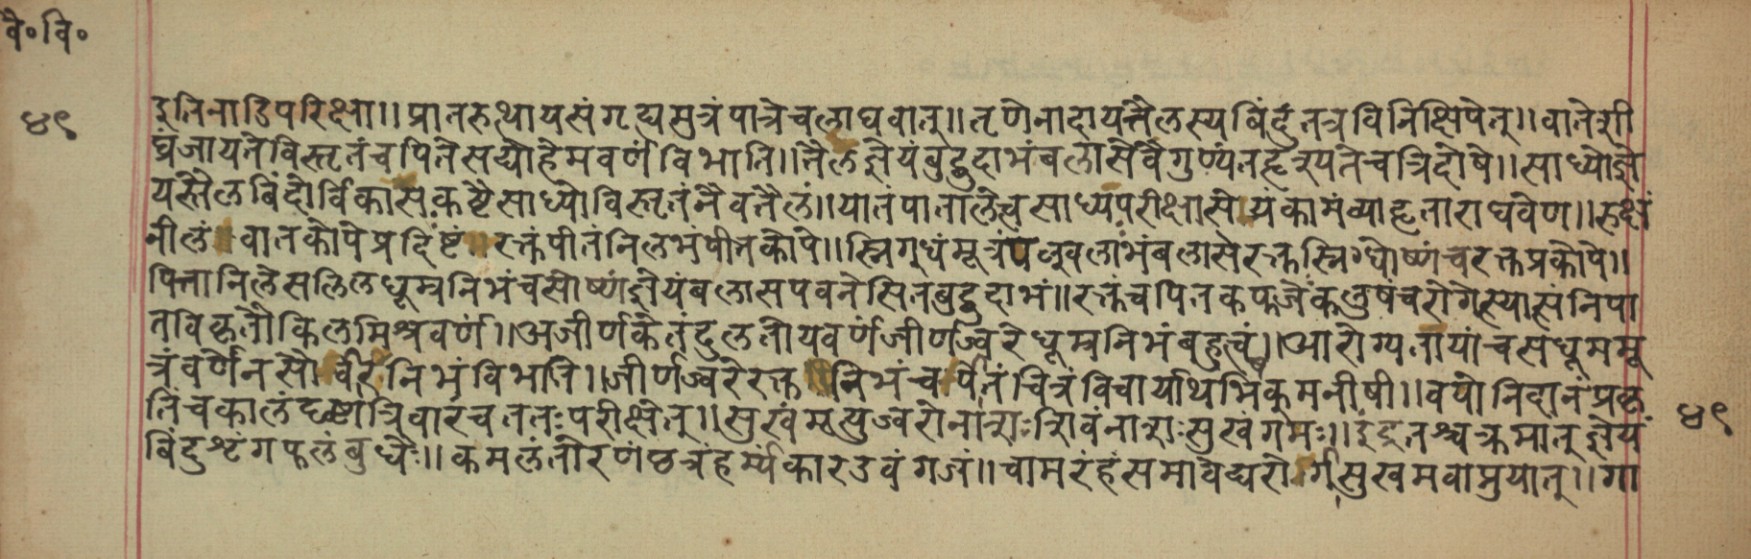 वै॰वि॰
४९
इतिनाडिपरिक्षा।। प्रातरुत्थायसंगृह्यमुत्रंपात्रेचलाघवात्॥तृणेनादायत्तैलस्यबिंदुंतत्रविनिक्षिपेत्।।वातेशी
घ्रंजायतेविस्तृतंचपितेसद्योहेमवर्णंविभाति।।तैलंज्ञेयंबुद्बुदाभंबलासेवैगुण्यंतद्दृश्यतेचत्रिदोषे॥साध्योज्ञे
यस्तैलबिंदोर्विकासेकष्टैसाध्योविस्तृतंनैवतैलं॥यातंपातालेत्वसाध्यंपरीक्षासेयंकामंव्याहृताराघवेण॥रुक्षं
नीलं वातकोपेप्रदिष्टं रक्तंपीतंनिलभंपीतकोपे।।स्निगुधंमूत्रंपल्वलाभंबलासेरक्तस्निग्धोष्णंचरक्तप्रकोपे॥
पित्तानिलेसलिलधूम्रनिभंचसोष्णंज्ञेयंबलासपवनेसितबुद्बुदाभं॥रक्तंचपितकफजेकलुषंचरोगेस्यात्संनिपा
तविकृतौकिलमिश्रवर्णं।।अजीर्णकेतंदुलतोयवर्णंजीर्णज्वरेधूम्रनिभंबहुत्वं।।आरोग्यतायांचसधूममू
त्रंवर्णेनसौवीरनिभंविभाति॥जीर्णज्वरेरक्त निभंचपितंचित्रंविचार्याथभिकुमनीषी॥वयोनिदानंप्रकृ
तिंचकालंदृष्ट्वात्रिवारंचततःपरीक्षेत्॥सुखंमृत्युज्वरोनाशःशिवंनाशःसुखंगमः॥इंद्रतश्चक्रमात्ज्ञेयं
बिंदुशृंगफलंबुधैः॥कमलंतोरणंछत्रंहर्म्यकारउवंगजं॥चामरंहंसमावेद्यरोगीसुखमवाप्नुयात्॥गा
४९